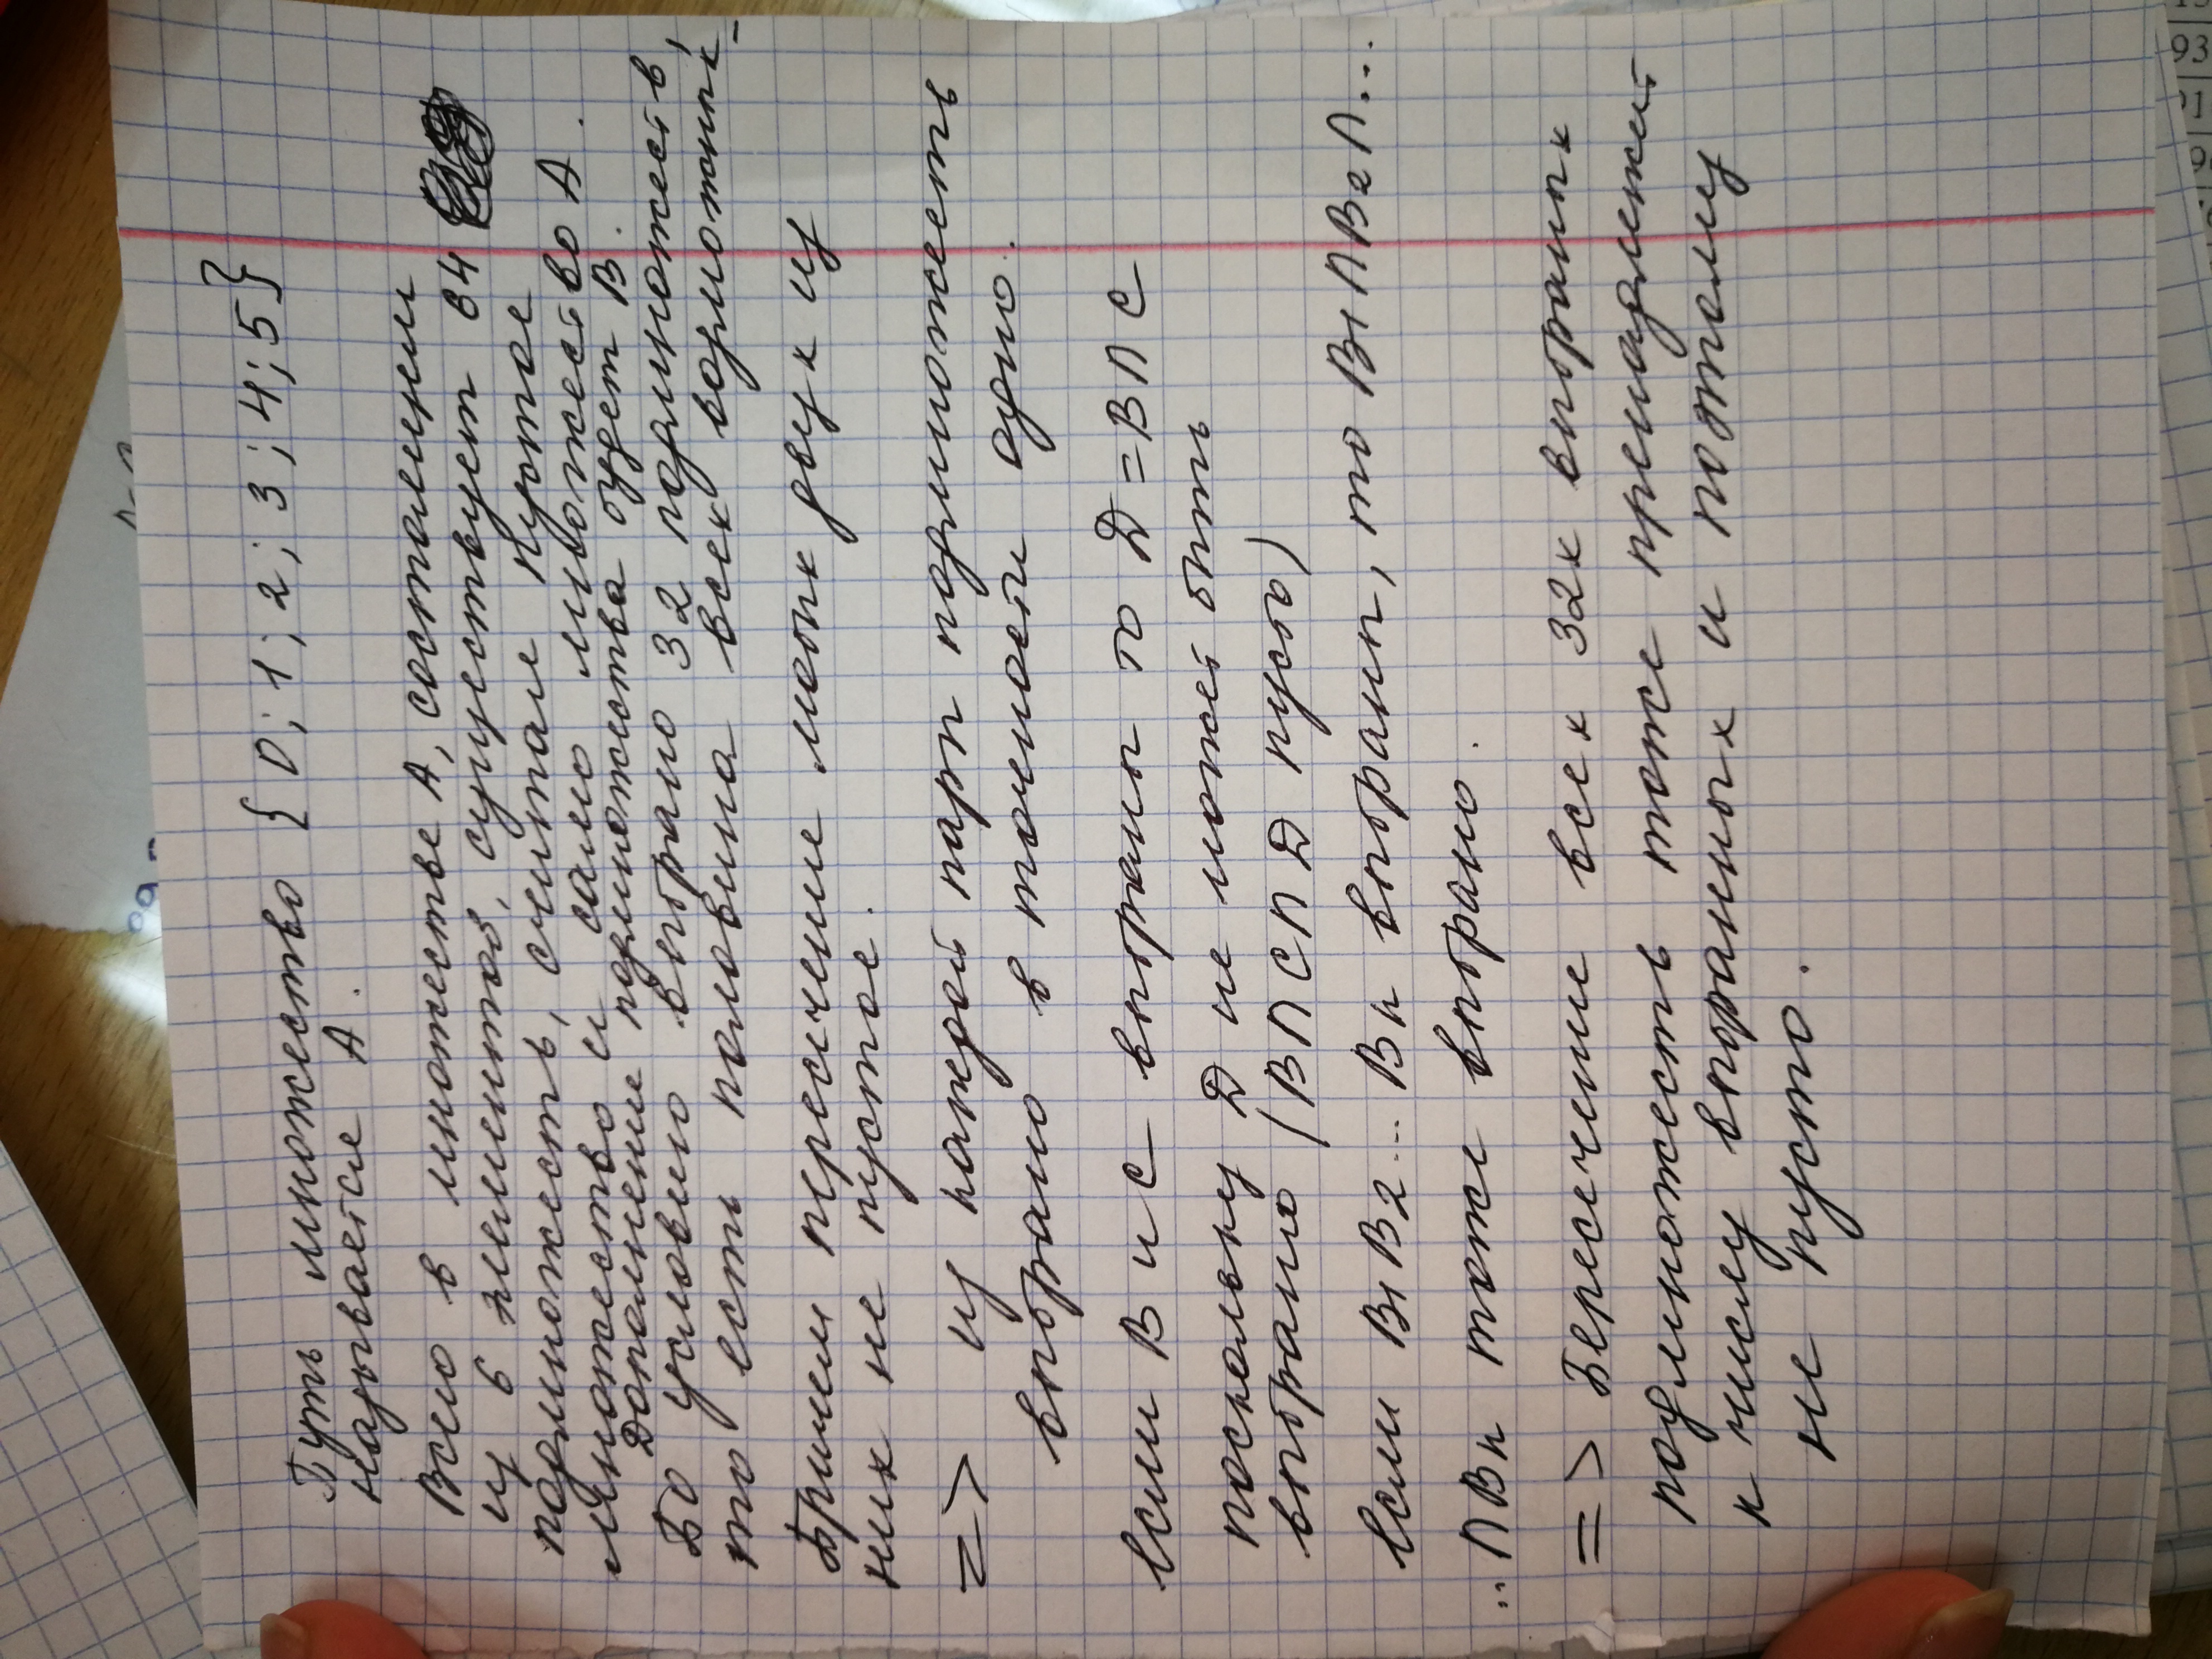 Пусть множество { 0; 1; 2; 3; 4; 5}
называется А.
Всего в множестве А, состоящем
из 6 элементов, существует 64
подмножеств, считая пустое
множество и само множество А.
Дополнение подмножества будет В.
По условию выбрано 32 подмножеств,
то есть половина всех возможных
Причем пересечение любых двух из
них не пустое.
=> из каждой пары подмножеств
выбрано в точности одно.
если В и С выбраны то D = B ∩ C
поскольку D не может быть
выбрано (B ∩ C ∩ D пусто)
если B1 B2 ... Bn выбраны, то B1 ∩ B2 ∩ ...
... ∩ Bn тоже выбрано.
=> Пересечение всех 32х выбранных
подмножеств тоже принадлежит
к числу выбранных и поэтому
не пусто.
93